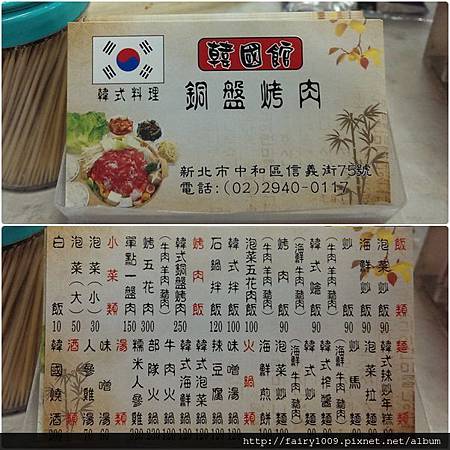 韓國館
韓式料理
銅盤烤肉
新北市中和區信義街75號
電話:(02)2940-0117
飯類
泡菜炒飯 90
海鮮炒飯 90
炒飯 90
(牛肉 羊肉 豬肉)
韓式燴飯
(海鮮 牛肉 豬肉)
烤肉飯 90
泡菜五花肉飯 100
韓式拌飯 100
石鍋拌飯
烤肉類
韓式銅盤烤肉 250
(牛肉 羊肉 豬肉)
烤五花肉 300
單點一盤肉 150
小菜類
泡菜(小) 30
泡菜(大) 50
白飯 10
麵類
韓式辣炒年糕
泡菜拉麵
炒馬麵
韓式炒麵
海鮮煎餅
火鍋類
味噌湯鍋
辣豆腐鍋
韓式泡菜鍋
韓式海鮮鍋
牛肉火鍋
部隊火鍋
糯米人參雞
湯類
味噌湯
人參雞湯
酒類
韓國燒酒
http://fairy1009.pixnet.net/album